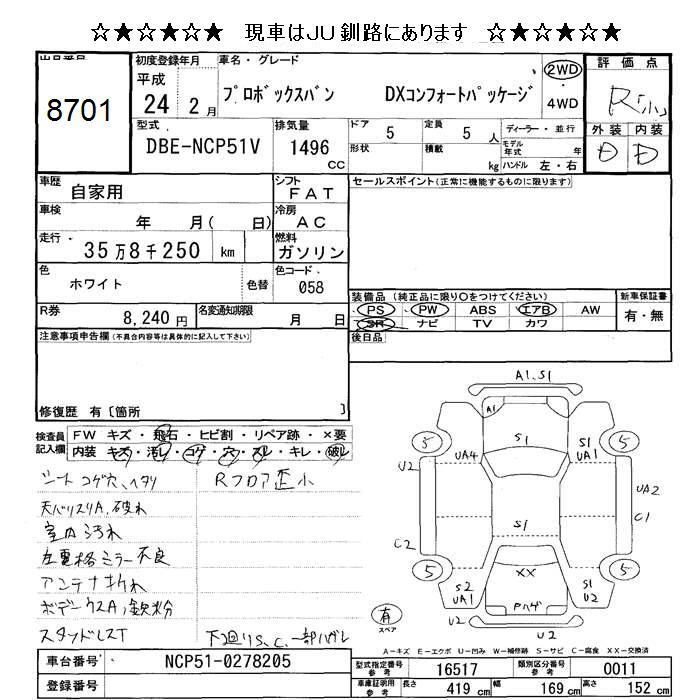 ☆★☆★☆★ 現車はJU釧路にあります ☆★☆★☆★
出品番号
8701
初度登録年月
平成
24 2 月
車名・グレード
プロボックスバン DXコンフォートパッケージ
2WD
・
4WD
評価点
R小
外装 内装
D D
型式
DBE-NCP51V
排気量
1496
CC
ドア 5
形状
定員 5 人
積載 kg
ディーラー・並行
モデル年式 年
ハンドル 左・右
車歴 自家用
シフト FAT
車検 年 月( 日)
冷房 AC
走行 35万8千250 km
燃料 ガソリン
色 ホワイト 色替
色コード 058
R券 8,240円
名変通知期限 月 日
セールスポイント(正常に機能するものに限ります)
装備品(純正品に限り○をつけてください)
PS PW ABS エアB AW
SR ナビ TV カワ
新車保証書
有・無
後日品
注意事項申告欄(不具合内容等は具体的に記入して下さい)
修復歴 有〔箇所 〕
検査員記入欄
FW キズ・飛石・ヒビ割・リペア跡・×要
内装 キズ・汚レ・コゲ・穴・スレ・キレ・破レ
シートコゲ穴、ヘタリ
Rフロア歪小
天バリスリA、破れ
室内汚れ
左電格ミラー不良
アンテナ折れ
ボデークスA、鉄粉
スタッドレスT
下廻りS、C、一部ハガレ
A1、S1
A1
S1
5
5
UA4
S1
UA1
U2
UA2
C1
S1
C2
XX
5
5
S2
UA1
S1
U2
Pハゲ
U2
U2
有
スペア
A-キズ E-エクボ U-凹み W-補修跡 S-サビ C-腐食 XX-交換済
車台番号 NCP51-0278205
登録番号
型式指定番号 参考 16517
類別区分番号 参考 0011
車庫証明用 参考 長さ 419 cm 幅 169 cm 高さ 152 cm